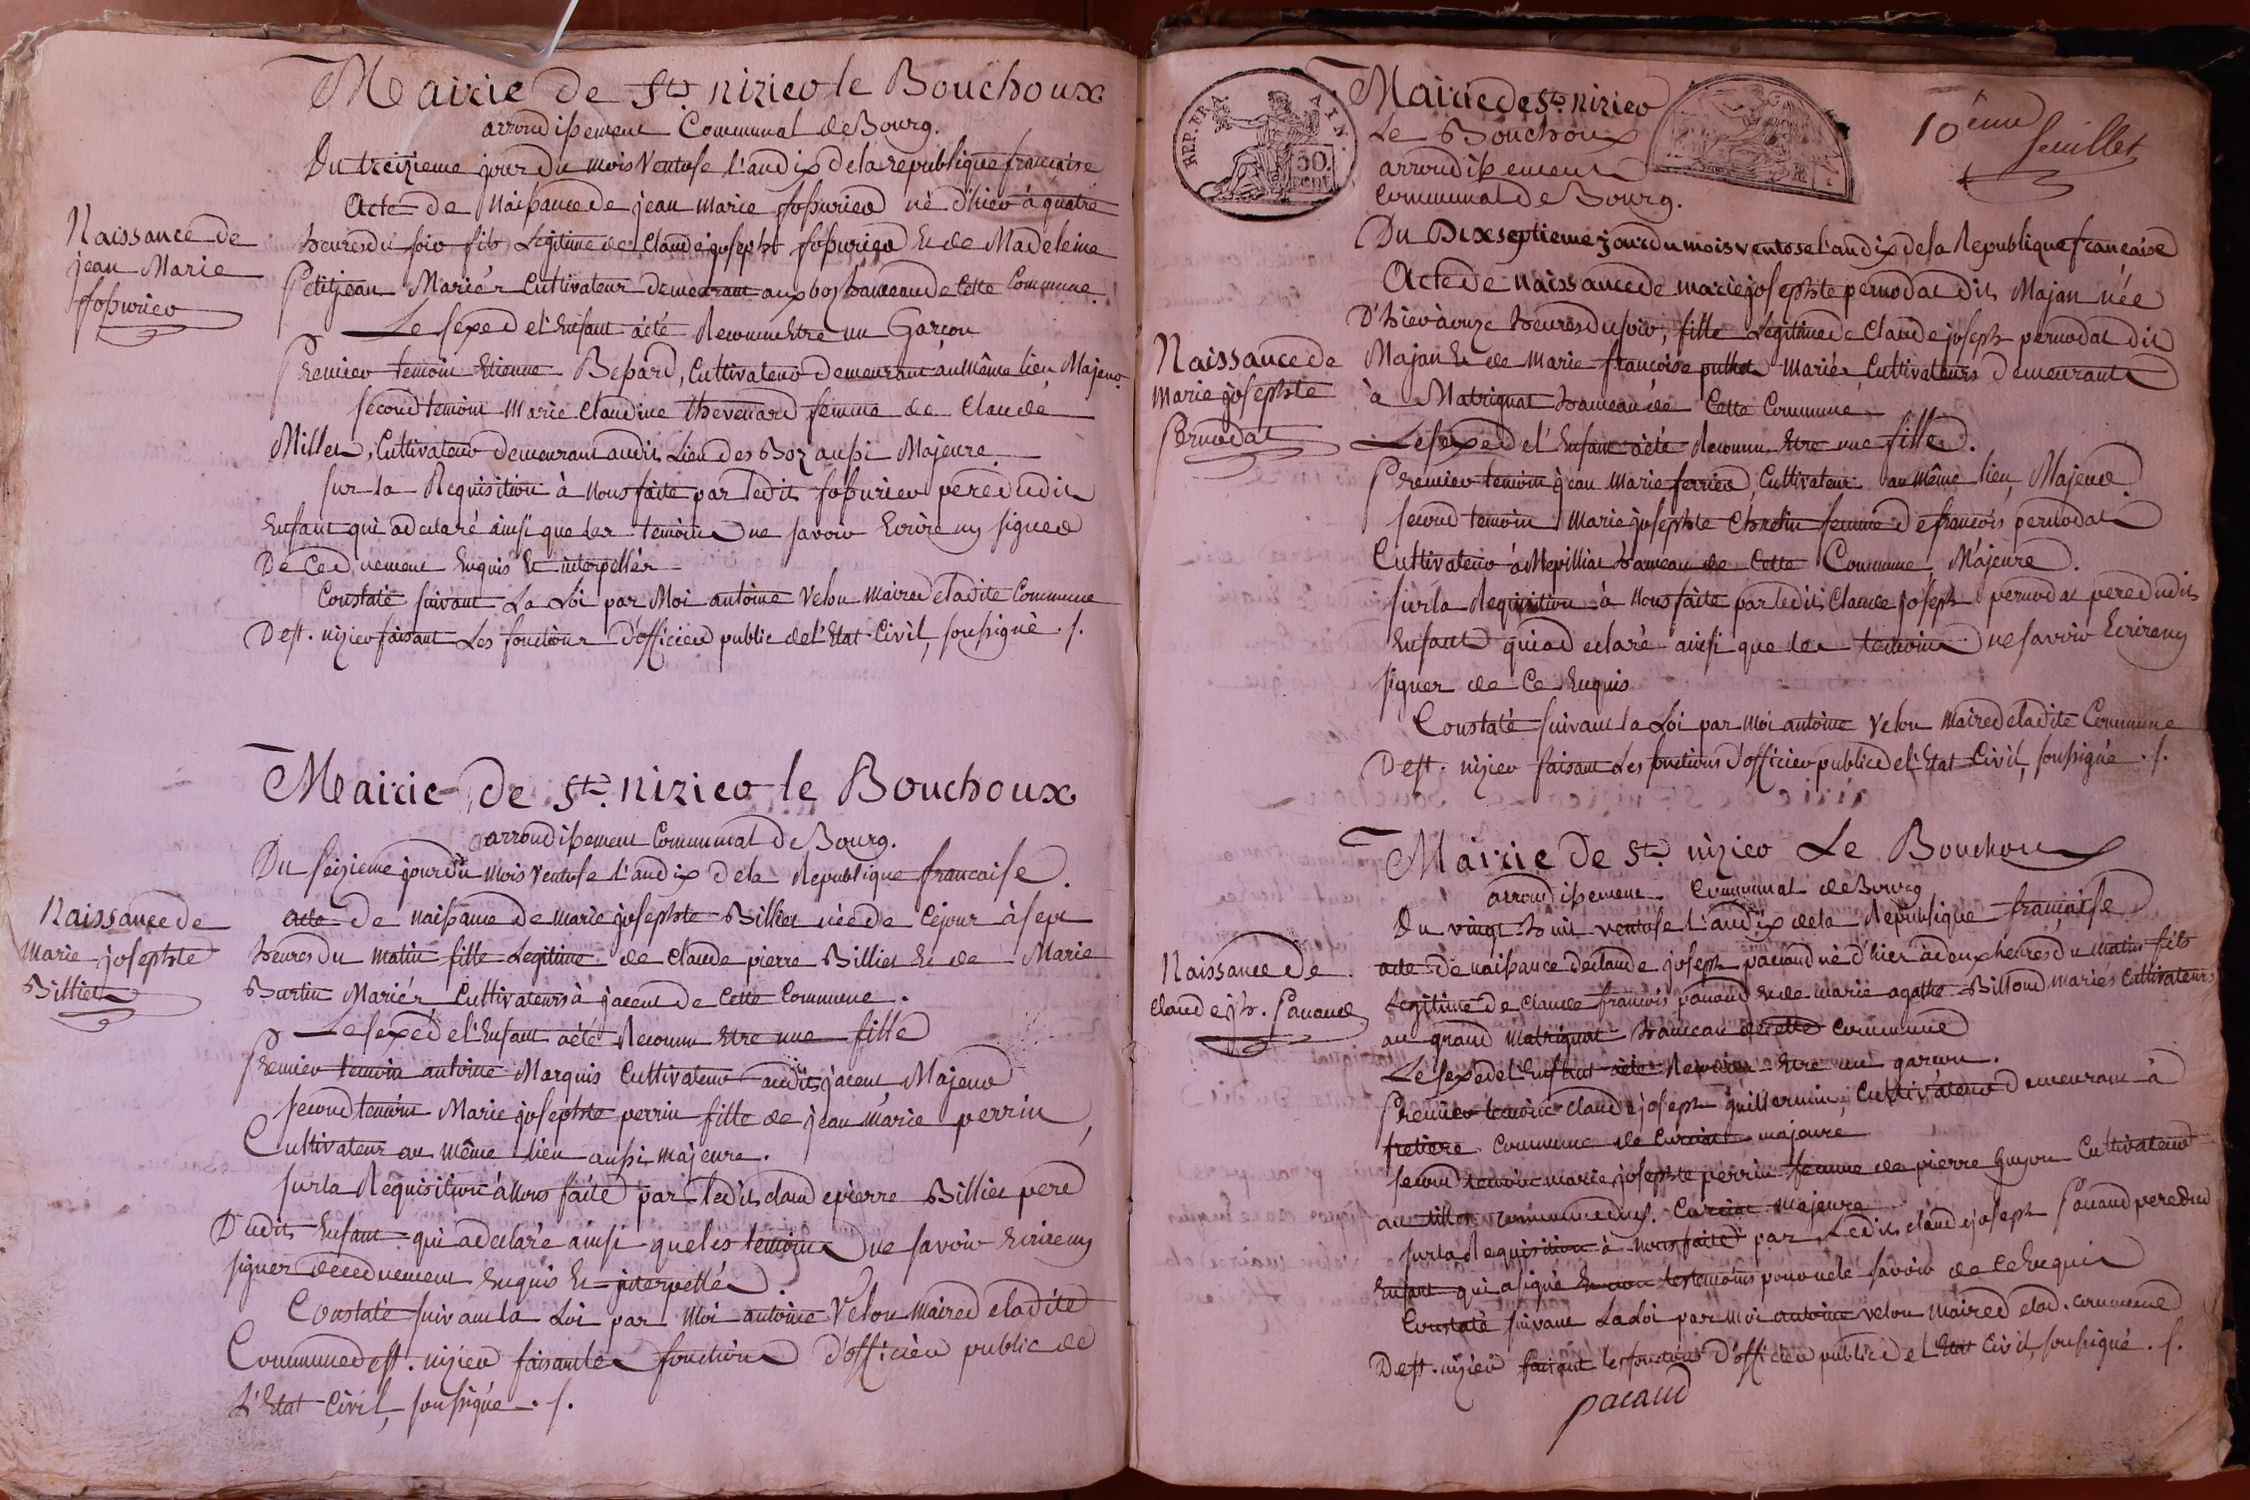 Mairie de St. nizier le Bouchoux
arrondissement Communal de Bourg.
Du treizieme jour du mois Ventose l'an dix de la republique francaise
Acte de Naissance de jean marie fossurier né d'hier à quatre
heures du soir fils Legitime de Claude joseph fossurier Et de Madeleine
Petitjean Mariés Cultivateur demeurant aux boz hameau de Cette Commune.
Le sexe de l'Enfant a été Reconnu Etre un Garçon
Premier temoin Etienne Bessard, Cultivateur demeurant au même lieu Majeur
second temoin Marie Claudine thevenard femme de Claude
Millet, Cultivateur demeurant audit Lieu des Boz aussi Majeure
sur la Requisition à Nous faite par ledit fossurier pere dudit
Enfant qui a declaré ainsi que les temoins ne savoir Ecrire ny signer
De Ce duement Enquis Et interpellés
Constaté suivant La Loi par Moi antoine Velon Maire de ladite Commune
De st. nizier faisant Les fonctions d'officier public de l'Etat Civil, soussigné . /.
Naissance de
jean Marie
fossurier
Mairie de St. nizier le Bouchoux
arrondissement Communal de Bourg.
Du seizieme jour du mois Ventose l'an dix de la Republique francaise.
acte de naissance de marie josephte Billiet née de Cejour à sept
heures du matin fille Legitime de Claude pierre Billiet Et de Marie
Burtin Mariés Cultivateurs à jacent de Cette Commune.
Le sexe de l'Enfant a été Reconnu Etre une fille
Premier temoin antoine Marquis Cultivateur audit jacent, Majeur
second temoin Marie josephte perrin fille de jean Marie perrin,
Cultivateur au même lieu aussi majeure.
sur la Requisition à Nous faite par ledit claude pierre Billiet pere
Dudit Enfant qui a declaré ainsi que les temoins ne savoir Ecrire ny
signer de ce duement Enquis Et interpellés.
Constaté suivant la Loi par Moi antoine Velon Maire de ladite
Commune de st. nizier faisant les fonctions d'officier public de
L'Etat Civil, soussigné . /.
Naissance de
marie josephte
Billiet
REP. FRA. AIN.
50. cent.
10eme feuillet
Mairie de St. nizier
Le Bouchoux
arrondissement
Communal de Bourg.
Du Dixseptieme jour du mois ventose l'an dix de la Republique francaise
Acte de Naissance de marie josephte pernodat dit Majan née
D'hier à onze heures du soir, fille Legitime de Claude joseph pernodat dit
Majan Et de Marie francoise Mariés Cultivateurs demeurants
à Matrignat hameau de Cette Commune
Le sexe de l'Enfant a été Reconnu Etre une fille.
Premier temoin jean Marie ferrier, Cultivateur au même lieu, Majeur
second temoin Marie josephte femme de francois pernodat
Cultivateur à Mepilliat hameau de Cette Commune Majeure.
sur la Requisition à Nous faite par ledit Claude joseph pernodat pere dudit
Enfant qui a declaré ainsi que les temoins ne savoir Ecrire ny
signer de Ce Enquis
Constaté suivant la Loi par Moi antoine Velon Maire de ladite Commune
De st. nizier faisant Les fonctions d'officier public de l'Etat Civil, soussigné . /.
Naissance de
Marie josephte
Pernodat
Mairie de St. nizier Le Bouchoux
arrondissement Communal de Bourg
Du vingt huit ventose l'an dix de la Republique française
acte de naissance de claude joseph pacaud né d'hier à deux heures du matin fils
Legitime de Claude francois pacaud Et de marie agathe Billoud mariés Cultivateurs
au grand Matrignat hameau de cette commune
Le sexe de l'Enfant a été Reconnu Etre un garcon.
Premier temoin Claude joseph guillermin, Cultivateur demeurant à
fretiere commune de Curciat majeure
second temoin marie josephte perrin femme de pierre guyon Cultivateur
au tillet commune dud. Curciat Majeure
sur la Requisition à Nous faite par Ledit claude joseph Pacaud pere dud
Enfant qui a signé les temoins pour ne le savoir de ce Enquis
Constaté suivant La Loi par Moi antoine velon Maire de lad. commune
De st. nizier faisant les fonctions d'officier public de l'Etat Civil, soussigné . /.
pacaud
Naissance de
Claude jh. Pacaud